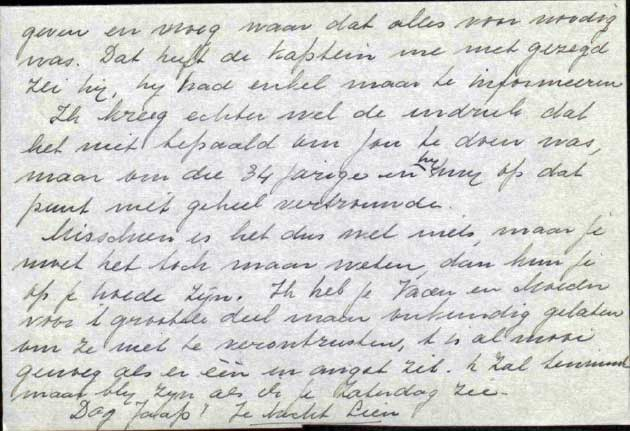 geven en vroeg waar dat alles voor noodig
was. Dat heeft de kaptein me niet gezegd
zei hij, hij had enkel maar te informeeren
Ik kreeg echter wel de indruk dat
het niet bepaald om jou te doen was,
maar om die 34 jarige en hij mij op dat
punt niet geheel vertrouwde.
Misschien is het dus wel niets, maar je
moet het toch maar weten, dan kun je
op je hoede zijn. Ik heb je Vader en Moeder
voor 't grootste deel maar onkundig gelaten
om ze niet te verontrusten, 't is al mooi
genoeg als er één in angst zit. 'k Zal
maar blij zijn als ik je Zaterdag zie.
Dag Jaap! Je Lien